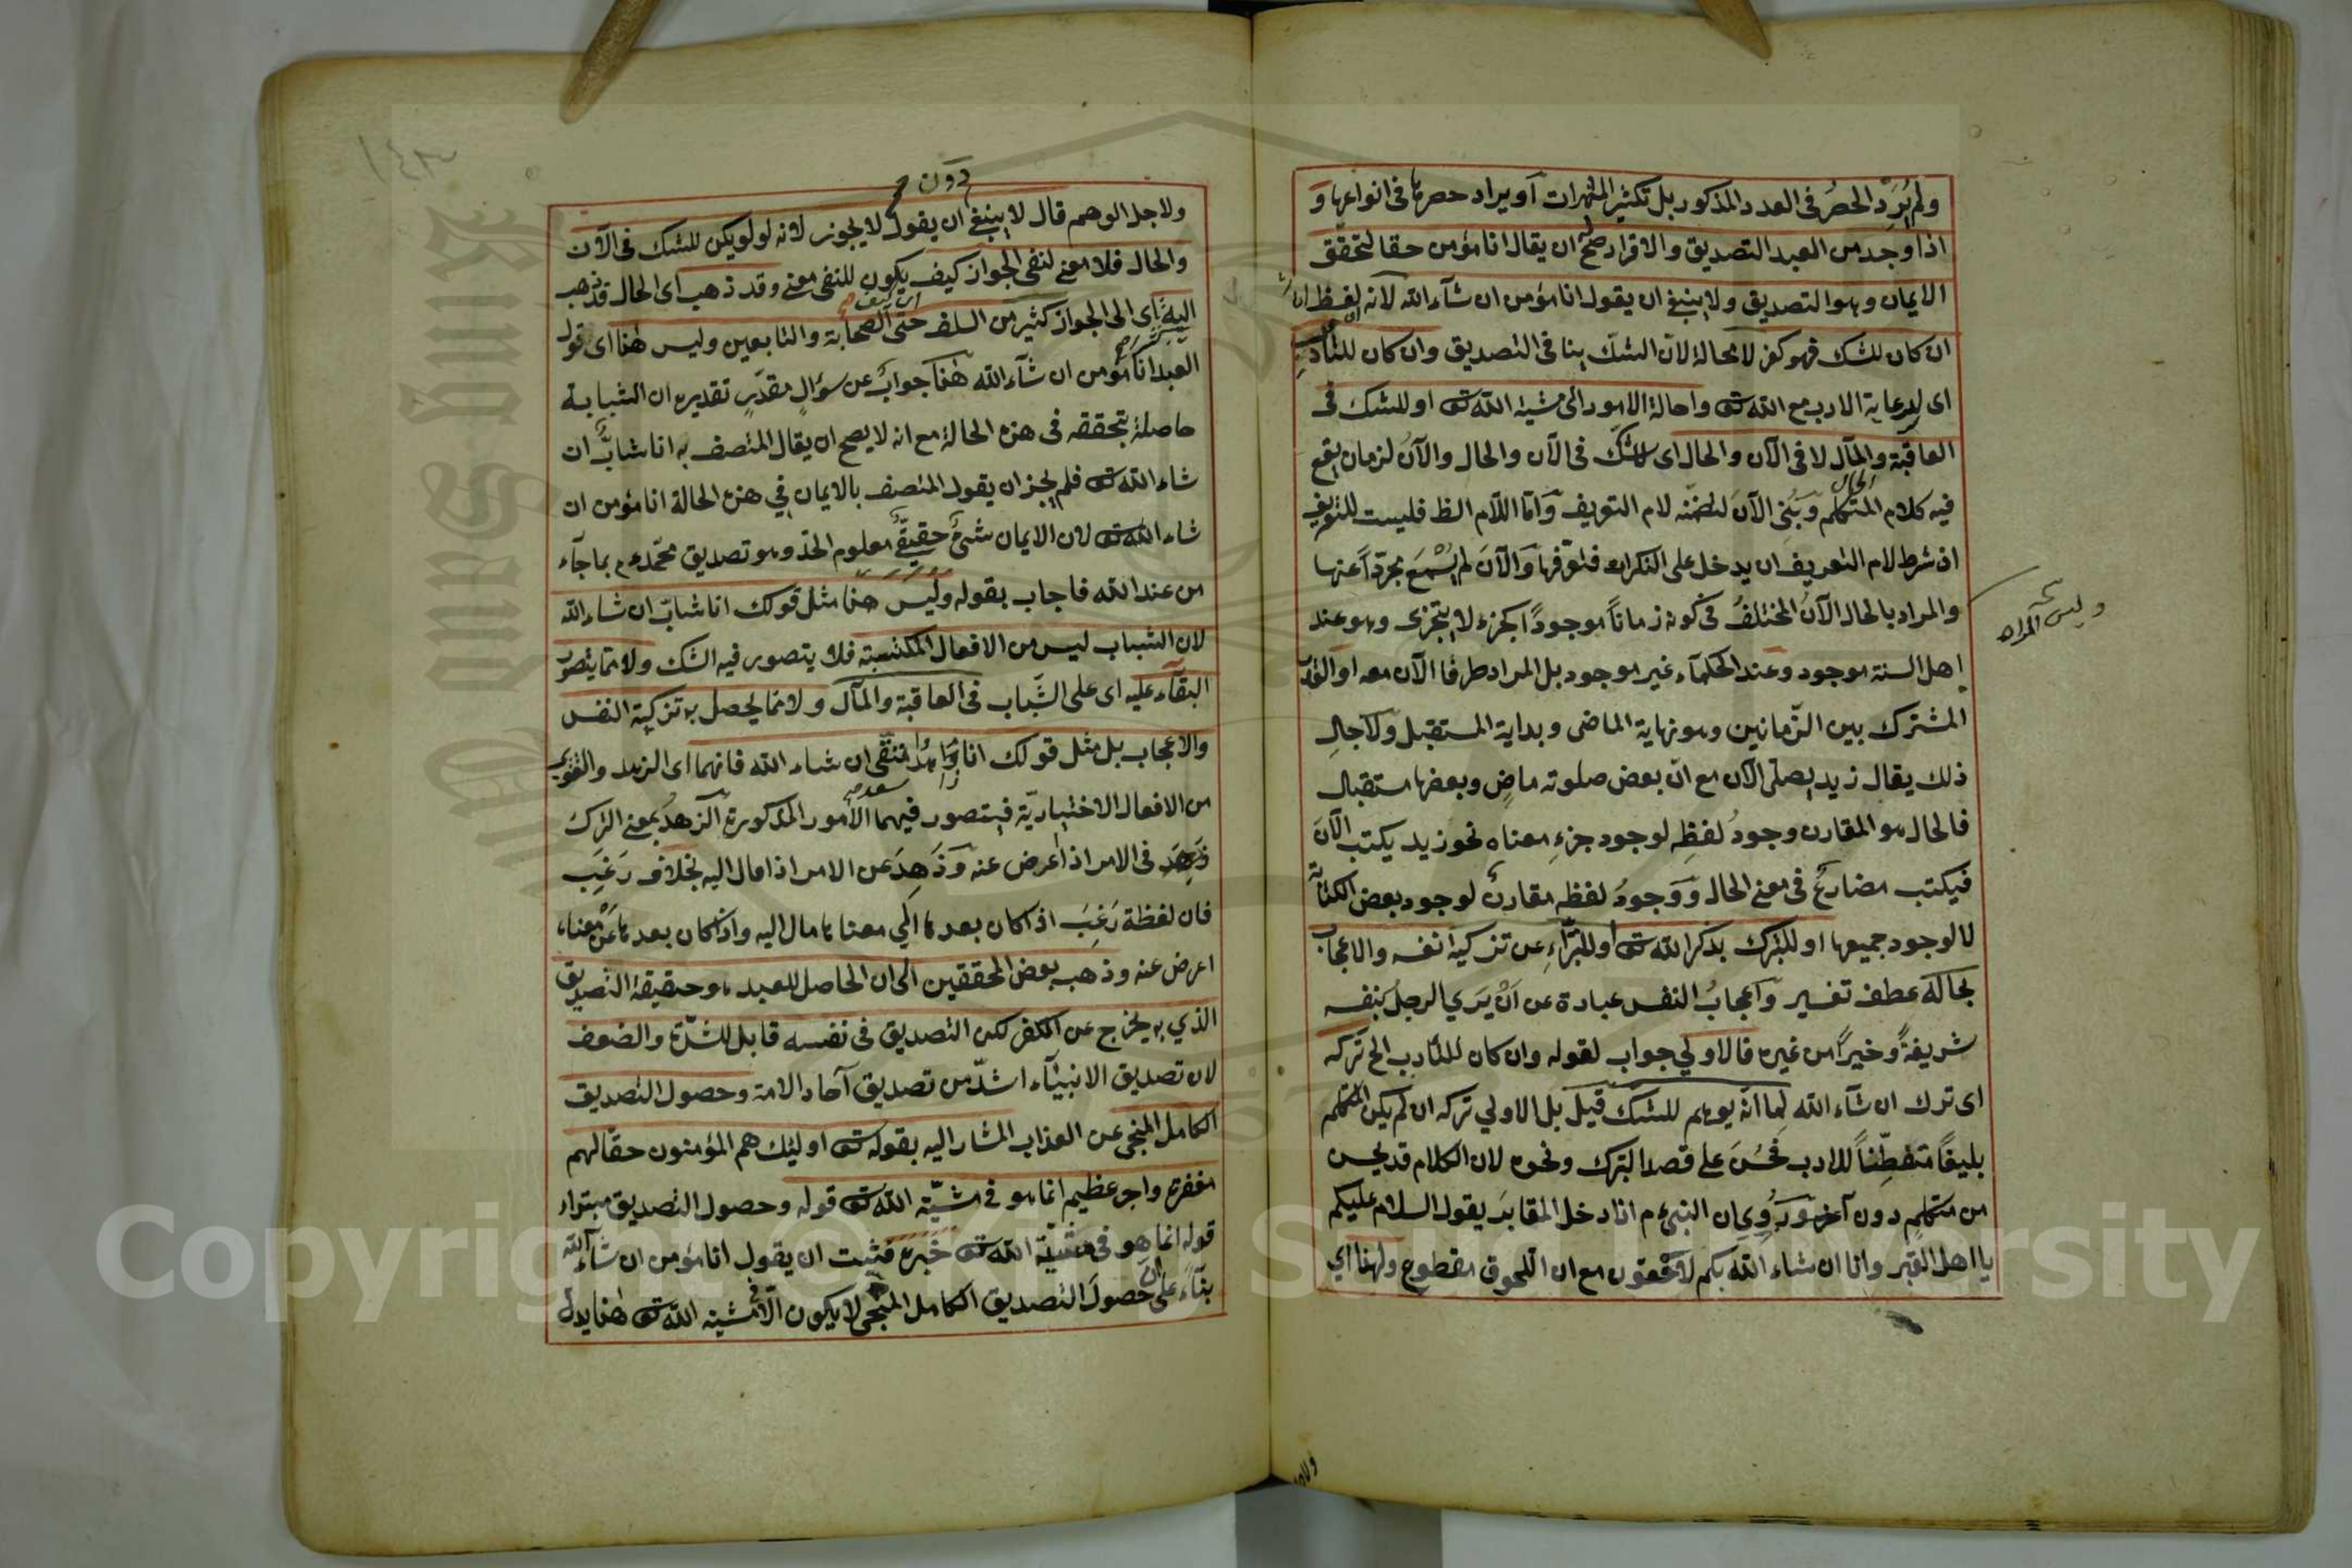 ولم يُرَد الحصرُ فى العدد المذكور بل تكثير الثمرات او يراد حصرها فى انواعها و
اذا وجد من العبد التصديق والاقرار صح له ان يقال انا مؤمن حقا لتحقق
الايمان وهو التصديق ولا ينبغى ان يقول انا مؤمن ان شآء الله لانه لفظ ان شا
ان كان للشك فهو كفر لا محالة لان الشك ينا فى التصديق وان كان للتأدب
اى لرعاية الادب مع الله تعـ واحالة الامور الى مشية الله تعـ او للشك فى
العاقبة والمآل لا فى الآن والحال اى للشك فى الآن والحال والآن لزمان يقع
فيه كلام المتكلم وبُنِى الآن لتضمنه لام التعريف وامّا اللام الظ فليست للتعريف
اذ شرط لام التعريف ان يدخل على النكرات فتعرّفها والآن لم يُسْمَع مجرّدا عنها
والمراد بالحال الآن المختلفُ فى كونه زماناً موجوداً كجزء لا يتجزى وهو عند
اهل السنة موجود وعند الحكمآء غير موجود بل المراد طرفا الآن معه او القدر
المشترك بين الزمانين وهو نهاية الماضى وبداية المستقبل ولاجل
ذلك يقال زيد يصلى الآن مع انّ بعض صلوته ماضٍ وبعضها مستقبل
فالحال هو المقارن وجودُ لفظِه لوجود جزءِ معناه نحو زيد يكتب الآن
فيكتب مضارعٌ فى معنى الحال ووجودُ لفظه مقارن لوجود بعض الكتابة
لا لوجود جميعها او للتبرك بذكر الله تعـ او للتبرّاءِ عن تزكية نفسه والاعجاب
بحاله عطف تفسير واعجابُ النفس عبادة عن اَنْ يَرَي الرجل نفسه
شريفةً وخيراً من غيره فالاولي جواب لقوله وان كان للتأدب الخ تركه
اى ترك ان شآء الله لِما انه يوهم للشك قيل بل الاولي تركه ان لم يكن المتكلم
بليغاً متفطّناً للادب فحَسُنَ على قصد التبرك ونحوه لان الكلام قد يحسن
من متكلم دون آخر ورُوِيَ ان النبى م اذا دخل المقابر يقول السلام عليكم
يا اهل القبر وانا ان شاء الله بكم لاحقون مع ان اللحوق مقطوع ولهذا اي
وليس المراد
ولا
١٤٣
دون
ولاجل الوهم قال لا ينبغى ان يقول لا يجوز لانه لو لم يكن للشك فى الآن
والحال فلا معنى لنفى الجواز كيف يكون للنفى معنى وقد ذهب اى الحال قد ذهب
اليه اى الى الجواز كثير من السلف حتى الصحابة والتابعين وليس هذا اى قول
العبد انا مؤمن ان شآء الله هذا جوابٌ عن سؤال مقدر تقديره ان الشبابة
حاصلة بتحققه فى هذه الحالة مع انه لا يصح ان يقال المتصف به انا شابٌّ ان
شاء الله تعـ فلم يجز ان يقول المتصف بالايمان في هذه الحالة انا مؤمن ان
شاء الله تعـ لان الايمان شئٌ حقيقىٌّ معلوم الحدّ وهو تصديق محمّد عم بما جآء
من عند الله فاجاب بقوله وليس هذا مثل قولك انا شابّ ان شاء الله
لان الشباب ليس من الافعال المكتسبة فلا يتصور فيه الشك ولا مما يتصور
البقآء عليه اى على الشّباب فى العاقبة والمآل ولا مما يحصل به تزكية النفس
والاعجاب بل مثل قولك انا زاهد متقى ان شاء الله فانهما اى الزهد والتقوى
من الافعال الاختياريّة فيتصور فيهما الامور المذكورة الزهد بمعنى الترك
زَهِدَ فى الامر اذا اعرض عنه وزَهِدَ عن الامر اذا مال اليه بخلاف رَغِبَ
فان لفظة رَغِبَ اذا كان بعدها الي معناها مال اليه واذا كان بعدها عَنْ معناه
اعرض عنه وذهب بعض المحققين الى ان الحاصل للعبد هو حقيقة التصديق
الذي به يخرج عن الكفر لكن التصديق فى نفسه قابل للشدّة والضعف
لان تصديق الانبيآء اشدّ من تصديق آحاد الامة وحصول التصديق
الكامل المنجى عن العذاب المشار اليه بقوله تعـ اولئك هم المؤمنون حقّا لهم
مغفرة واجر عظيم انما هو فى مشيّة الله تعـ قوله وحصول التصديق مبتداء
قوله انما هو فى مشيّة الله تعـ خبره فثبت ان يقول انا مؤمن ان شآء الله
بنآء على ان حصول التصديق الكامل المنجى لا يكون الّا فى مشية الله تعـ هذا يدل
Copyright © King Saud University